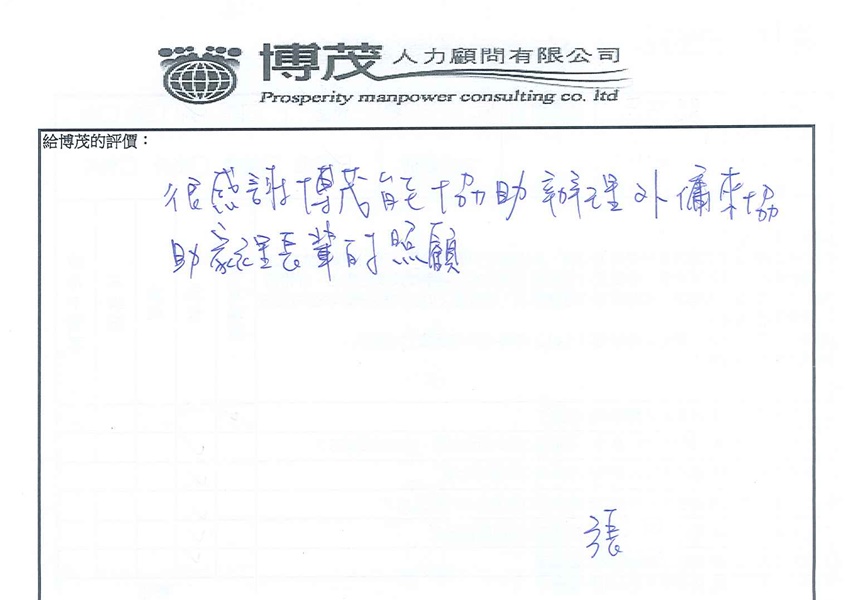 博茂人力顧問有限公司
Prosperity manpower consulting co. ltd
給博茂的評價：
很感謝博茂能協助辦理外傭來協
助家裡長輩的照顧
張